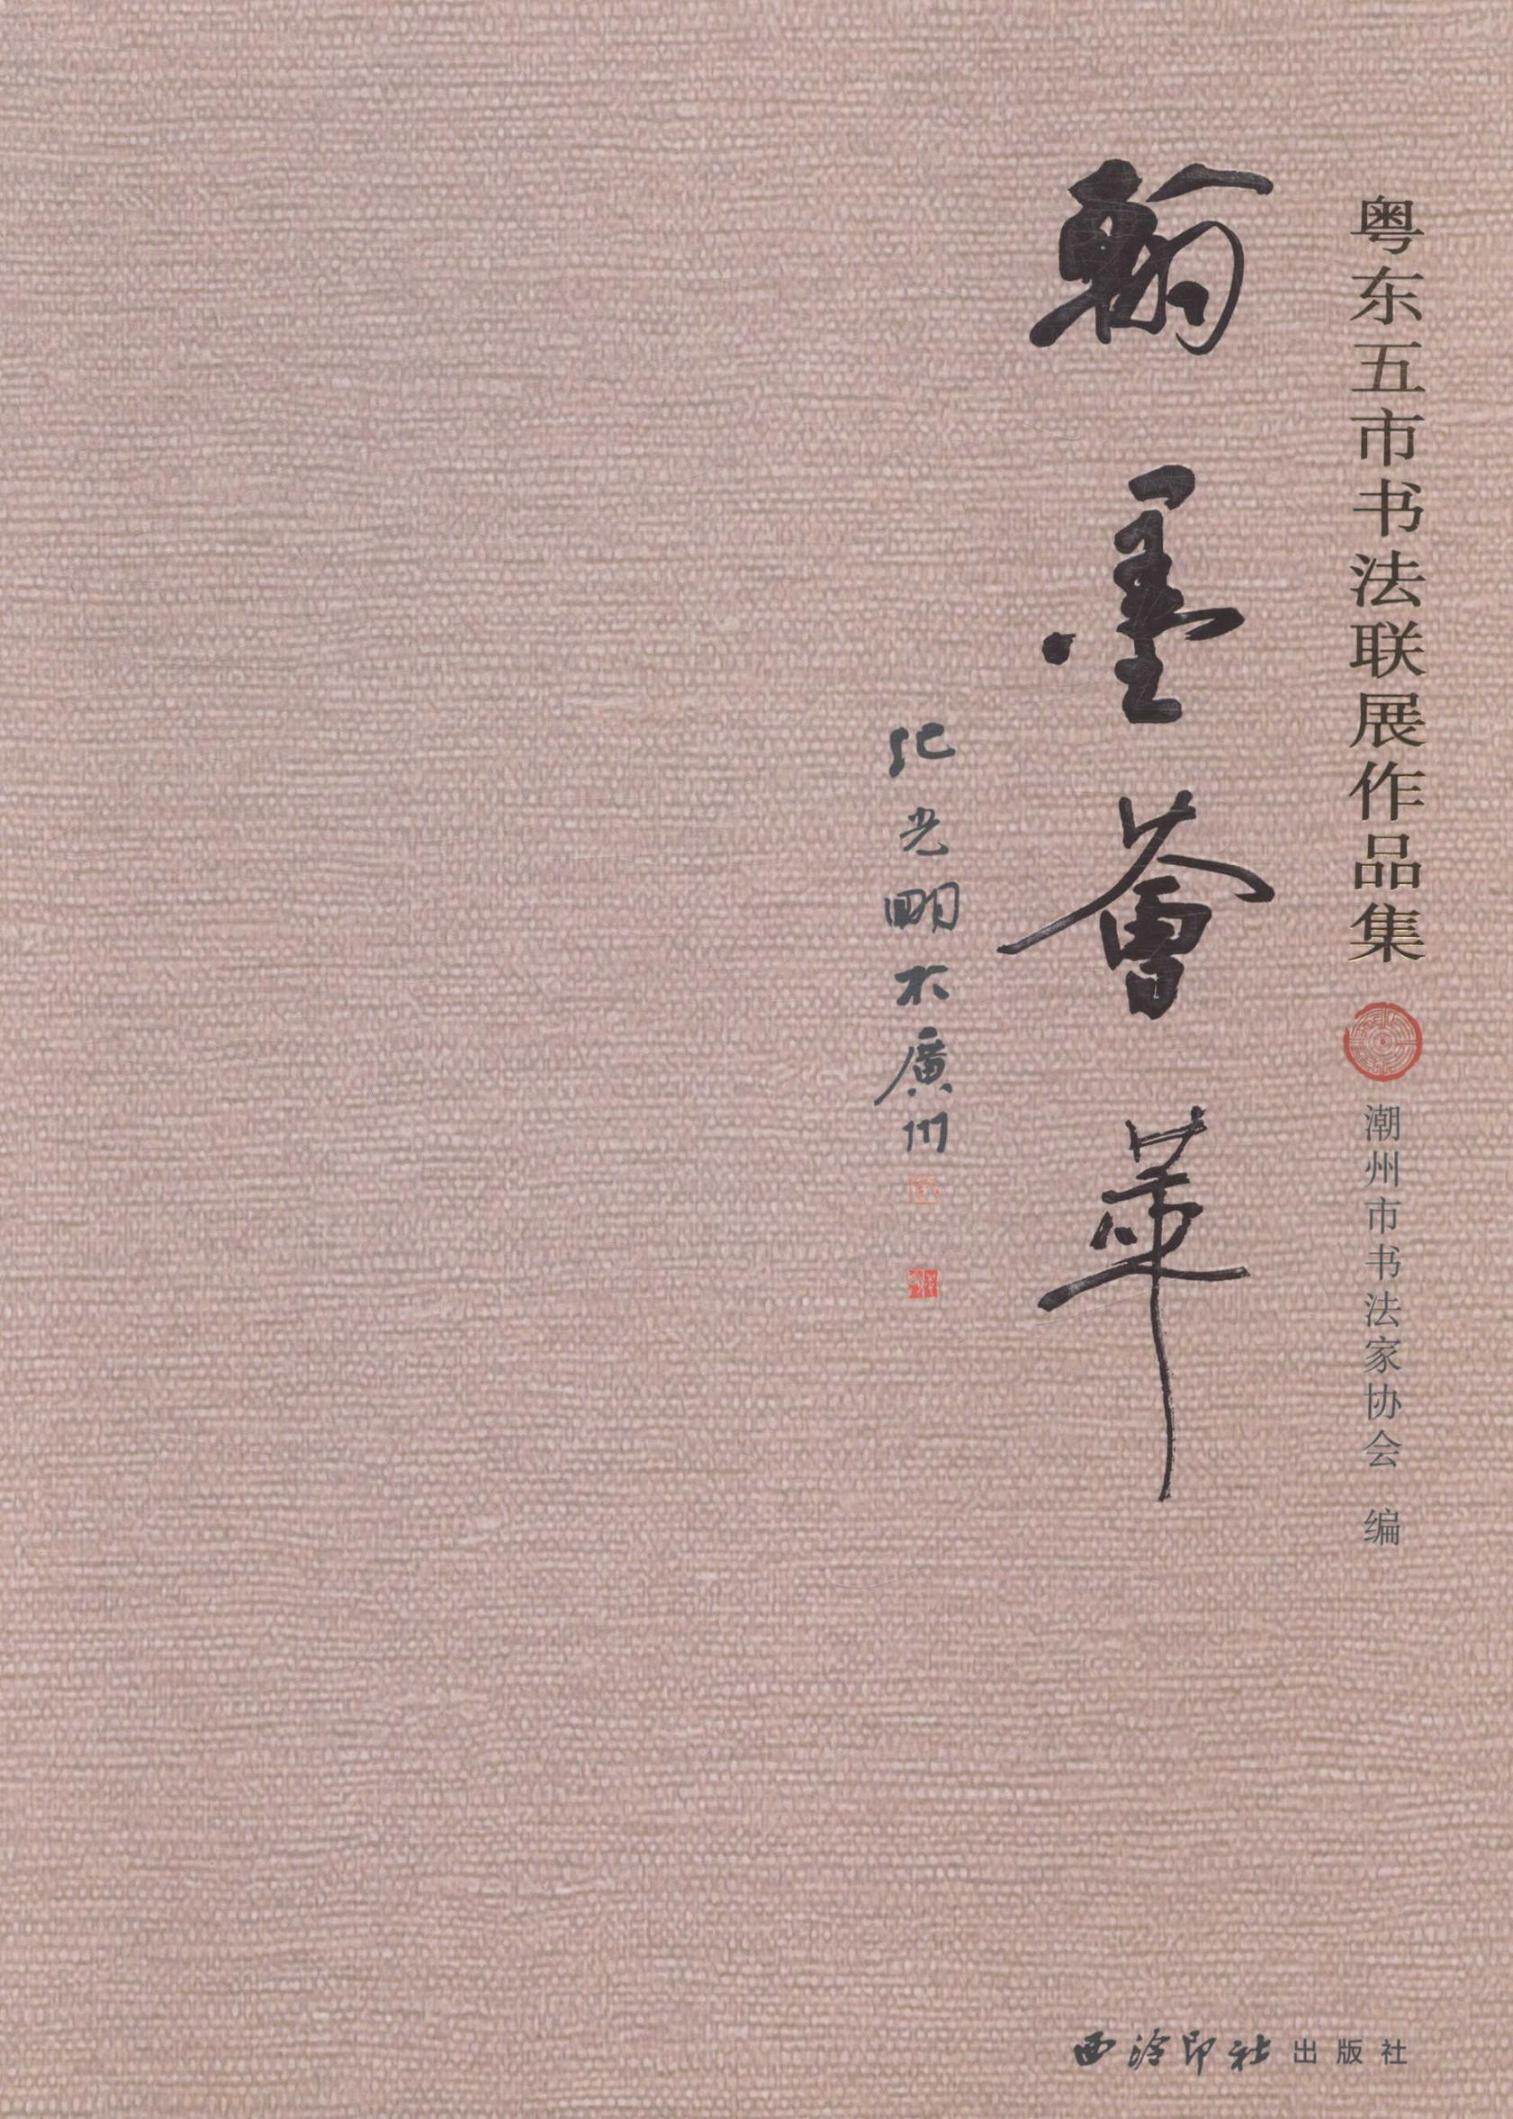 粤东五市书法联展作品集
潮州市书法家协会 编
翰墨荟萃
纪光明 于廣州
西泠印社出版社